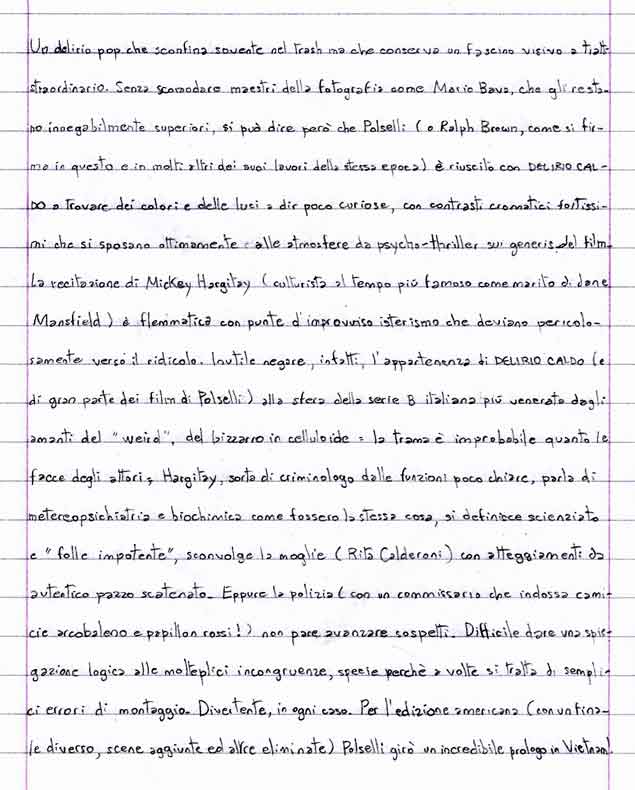 Un delirio pop che sconfina sovente nel trash ma che conserva un fascino visivo a tratti
straordinario. Senza scomodare maestri della fotografia come Mario Bava, che gli resta-
no innegabilmente superiori, si può dire però che Polselli (o Ralph Brown, come si fir-
ma in questo e in molti altri dei suoi lavori della stessa epoca) è riuscito con DELIRIO CAL-
DO a trovare dei colori e delle luci a dir poco curiose, con contrasti cromatici fortissi-
mi che si sposano ottimamente alle atmosfere da psycho-thriller sui generis del film.
La recitazione di Mickey Hargitay (culturista al tempo più famoso come marito di Jane
Mansfield) è flemmatica con punte d'improvviso isterismo che deviano pericolo-
samente verso il ridicolo. Inutile negare, infatti, l'appartenenza di DELIRIO CALDO (e
di gran parte dei film di Polselli) alla sfera della serie B italiana più venerata dagli
amanti del "weird", del bizzarro in celluloide: la trama è improbabile quanto le
facce degli attori; Hargitay, sorta di criminologo dalle funzioni poco chiare, parla di
metereopsichiatria e biochimica come fossero la stessa cosa, si definisce scienziato
e "folle impotente", sconvolge la moglie (Rita Calderoni) con atteggiamenti da
autentico pazzo scatenato. Eppure la polizia (con un commissario che indossa cami-
cie arcobaleno e papillon rossi!) non pare avanzare sospetti. Difficile dare una spie-
gazione logica alle molteplici incongruenze, specie perchè a volte si tratta di sempli-
ci errori di montaggio. Divertente, in ogni caso. Per l'edizione americana (con un fina-
le diverso, scene aggiunte ed altre eliminate) Polselli girò un incredibile prologo in Vietnam!